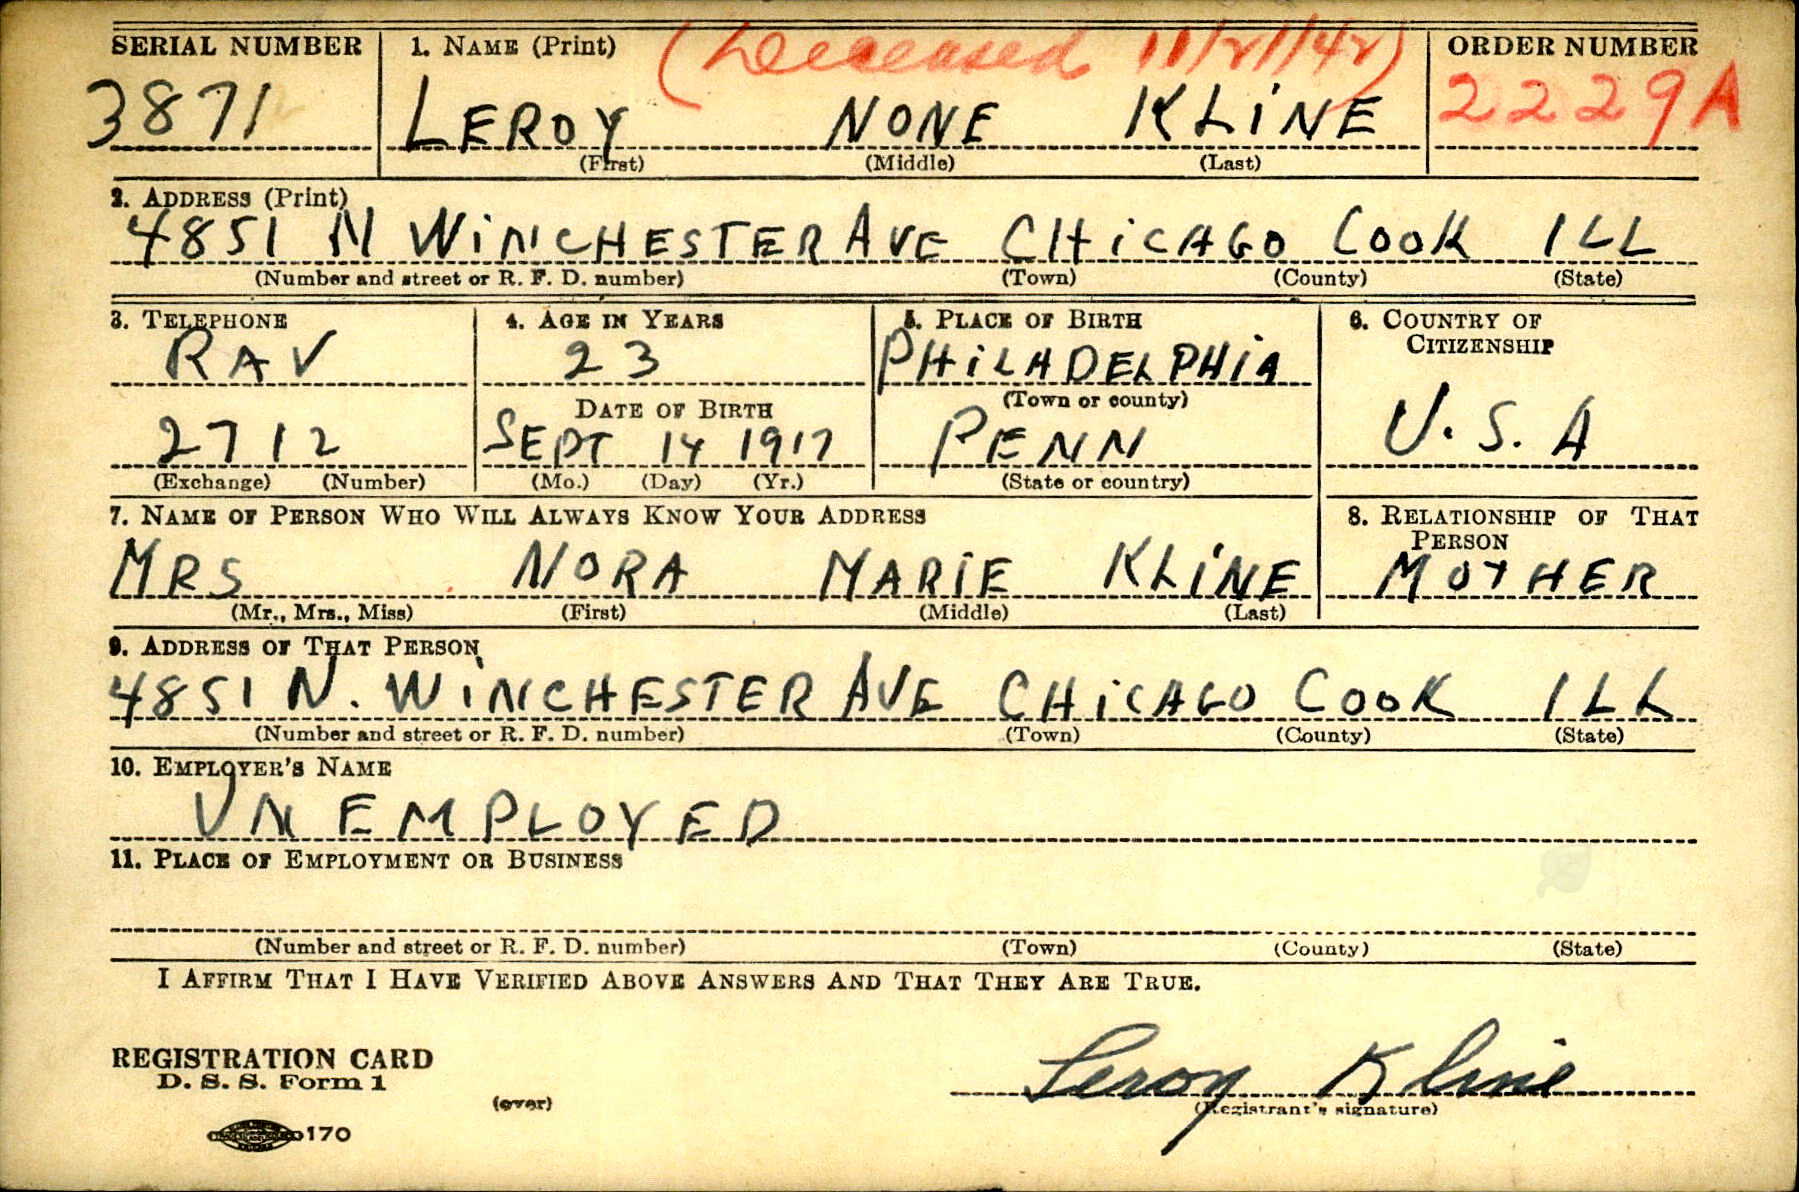 SERIAL NUMBER 1. NAME (Print) (Deceased 11/21/42) ORDER NUMBER
3871 LEROY NONE KLINE 2229A
(First) (Middle) (Last)
2. ADDRESS (Print)
4851 N WINCHESTER AVE CHICAGO COOK ILL
(Number and street or R. F. D. number) (Town) (County) (State)
3. TELEPHONE 4. AGE IN YEARS 5. PLACE OF BIRTH 6. COUNTRY OF
CITIZENSHIP
RAV 23 PHILADELPHIA
DATE OF BIRTH (Town or county)
2712 SEPT 14 1917 PENN U.S.A
(Exchange) (Number) (Mo.) (Day) (Yr.) (State or country)
7. NAME OF PERSON WHO WILL ALWAYS KNOW YOUR ADDRESS 8. RELATIONSHIP OF THAT
PERSON
MRS NORA MARIE KLINE MOTHER
(Mr., Mrs., Miss) (First) (Middle) (Last)
9. ADDRESS OF THAT PERSON
4851 N. WINCHESTER AVE CHICAGO COOK ILL
(Number and street or R. F. D. number) (Town) (County) (State)
10. EMPLOYER'S NAME
UNEMPLOYED
11. PLACE OF EMPLOYMENT OR BUSINESS
(Number and street or R. F. D. number) (Town) (County) (State)
I AFFIRM THAT I HAVE VERIFIED ABOVE ANSWERS AND THAT THEY ARE TRUE.
REGISTRATION CARD
D. S. S. Form 1 Leroy Kline
(over) (Registrant's signature)
170